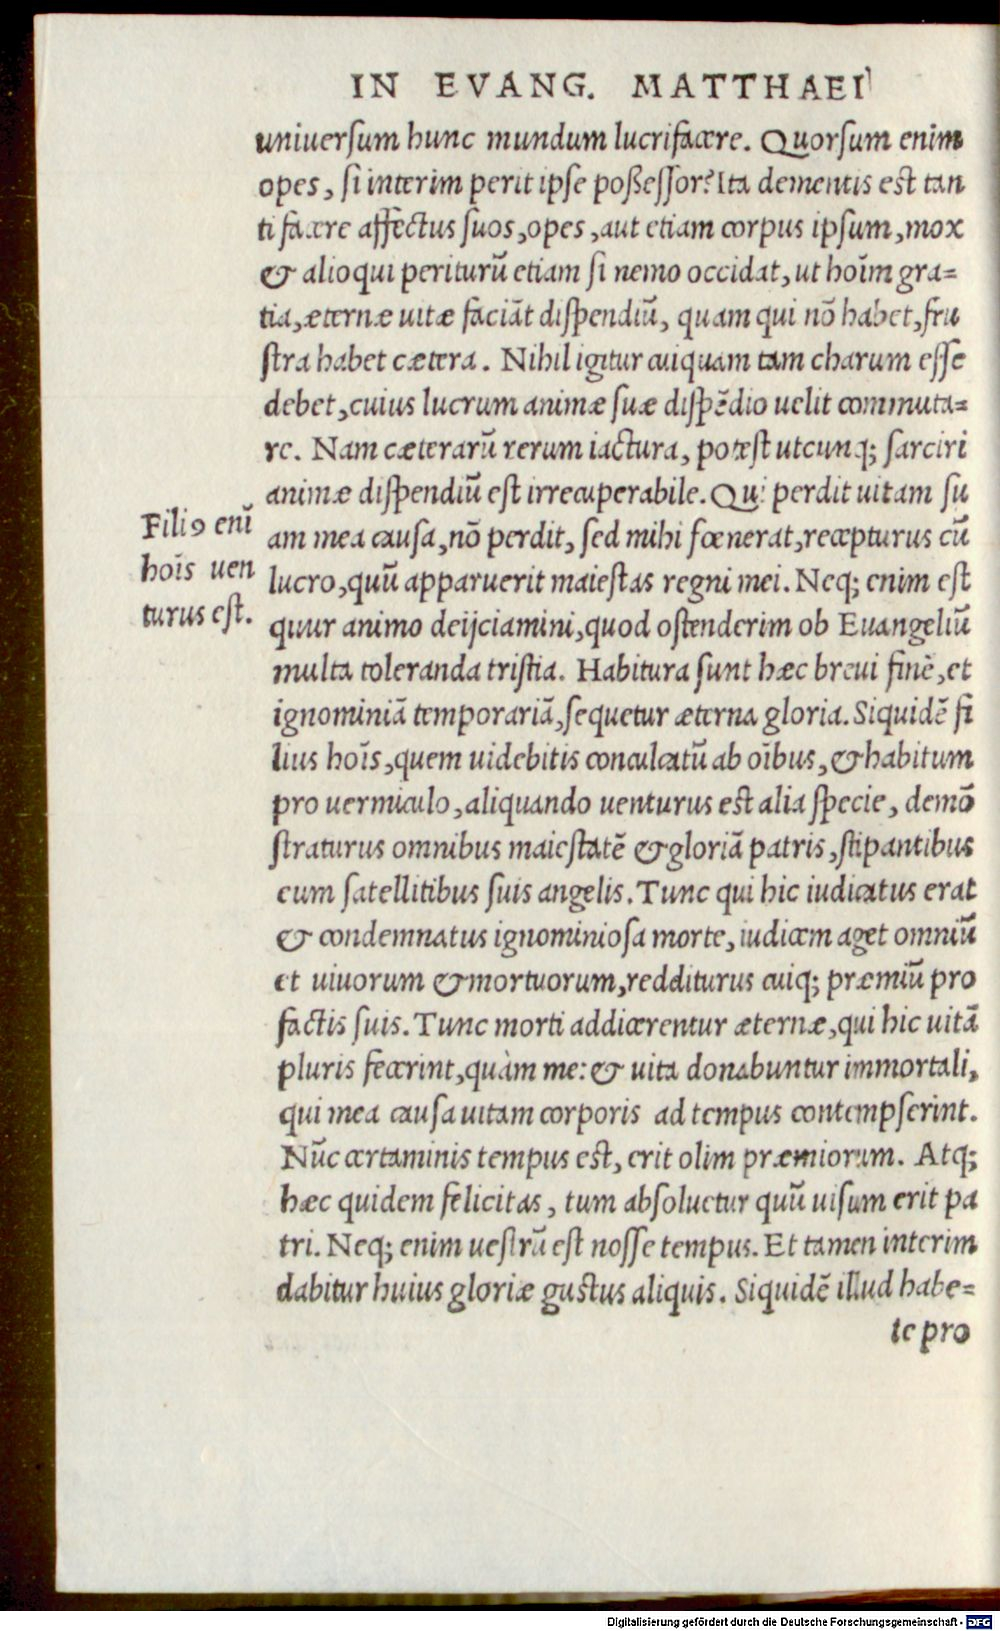 IN EVANG. MATTHAEI
uniuerſum hunc mundum lucrifacere. Quorſum enim
opes, ſi interim perit ipſe poßeſſor? Ita dementis est tan
ti facere affectus ſuos, opes, aut etiam corpus ipſum, mox
& alioqui periturũ etiam ſi nemo occidat, ut hoĩm gra=
tia, æternæ uitæ faciãt diſpendiũ, quam qui nõ habet, fru
ſtra habet cætera. Nihil igitur cuiquam tam charum eſſe
debet, cuius lucrum animæ ſuæ diſpẽdio uelit commuta=
re. Nam cæterarũ rerum iactura, potest utcunq; ſarciri
animæ diſpendiũ est irrecuperabile. Qui perdit uitam ſu
Filiꝰ enĩ
hoĩs uen
turus eſt.
am mea cauſa, nõ perdit, ſed mihi fœnerat, recepturus cũ
lucro, quũ apparuerit maieſtas regni mei. Neq; enim est
quur animo deijciamini, quod oſtenderim ob Euangeliũ
multa toleranda triſtia. Habitura ſunt hæc breui finẽ, et
ignominiã temporariã, ſequetur æterna gloria. Siquidẽ fi
lius hoĩs, quem uidebitis conculcatũ ab oĩbus, & habitum
pro uermiculo, aliquando uenturus est alia ſpecie, demõ
ſtraturus omnibus maieſtatẽ & gloriã patris, ſtipantibus
eum ſatellitibus ſuis angelis. Tunc qui hic iudicatus erat
& condemnatus ignominioſa morte, iudicem aget omniũ
et uiuorum & mortuorum, redditurus cuiq; præmiũ pro
factis ſuis. Tunc morti addicerentur æternæ, qui hic uitã
pluris fecerint, quàm me: & uita donabuntur immortali,
qui mea cauſa uitam corporis ad tempus contempſerint.
Nũc certaminis tempus est, erit olim præmiorum. Atq;
hæc quidem felicitas, tum abſoluetur quũ uiſum erit pa
tri. Neq; enim ueſtrũ est noſſe tempus. Et tamen interim
dabitur huius gloriæ guſtus aliquis. Siquidẽ illud habe=
te pro
Digitalisierung gefördert durch die Deutsche Forschungsgemeinschaft - DFG